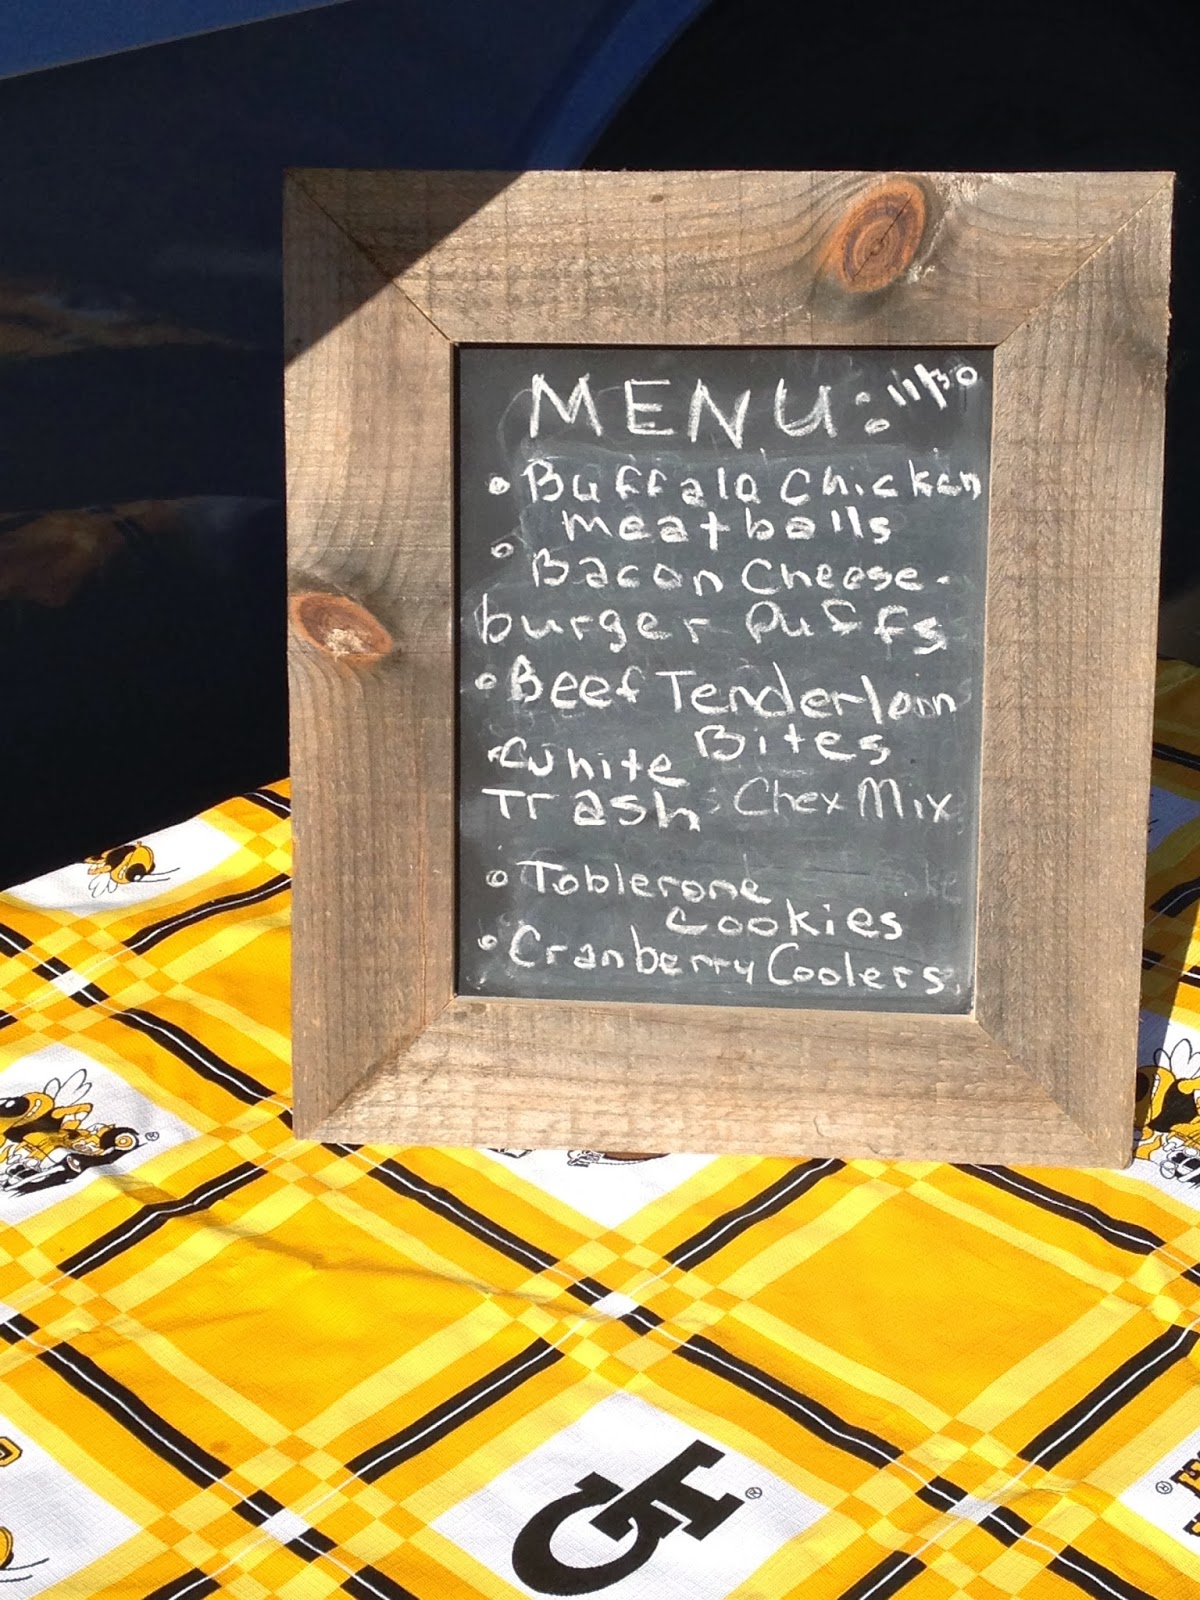 MENU: 11/30
• Buffalo Chicken
meatballs
• Bacon Cheese-
burger Puffs
• Beef Tenderloin
Bites
• White
Trash: Chex Mix
• Toblerone
Cookies
• Cranberry Coolers
GT ®
®
®